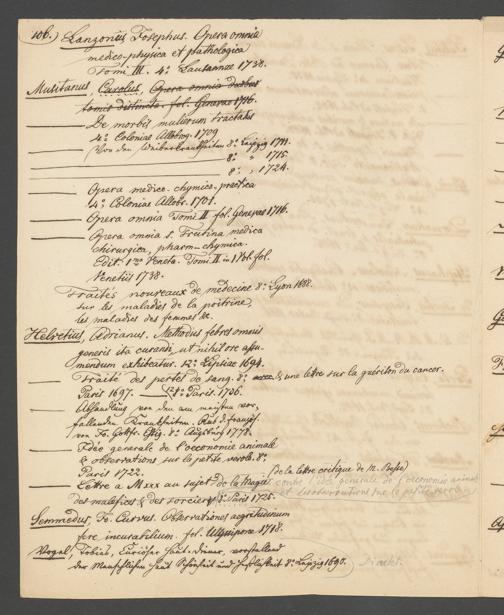 106.) Lanzonius Josephus. Opera omnia
medico-physica et pathologica
Tomi III. 4.° Lausannae 1738.
Musitanus, Carolus, Opera omnia duobus
tomis distincta. fol. Genevae 1716.
De morbis mulierum tractatus
4.° Coloniae Allobrog. 1709
Von den Weiberkrankheiten 8.° Leipzig 1711.
8.° " 1715.
8.° " 1724.
Opera medico-chymico-practica
4.° Coloniae Allobr. 1701.
Opera omnia Tomi II fol. Genevae 1716.
Opera omnia s. Trutina medica
chirurgica, pharm-chymica.
Edit. Veneta. Tomi II in fol.
Venetiis 1738.
Traités nouveaux de médecine 8.° Lyon
sur les maladies de la poitrine,
les maladies des femmes &c.
Helvetius, Adrianus. Methodus febres omnis
generis ita curandi, ut nihil ore assu-
mendum exhibeatur. 12.° Lipsiae 1694.
Traité des pertes de sang. 8.° & une lettre sur la guérison du cancer.
Paris 1697. Paris. 1706.
Abhandlung von den am meisten vor-
fallenden Krankheiten. Aus d. französ.
von Augsburg
Idée generale de l'oeconomie animale
& observations sur la petite verole. 8.°
Paris 1722. (de la lettre critique de M. Besse)
Lettre a M.xxx au sujet de la Magie contre l'idée generale de l'oeconomie animale
des malefices & des sorciers 8.° Paris 1725. et les observations sur la petite verole
Semmedus, Jo. Curvus. Observationes aegritudinum
fere incurabilium. fol. Ulyssipone 1718.
Vogel, Tobias, Curiöser
der Menschlichen Haut Schönheit und 8.° Leipzig 1690.